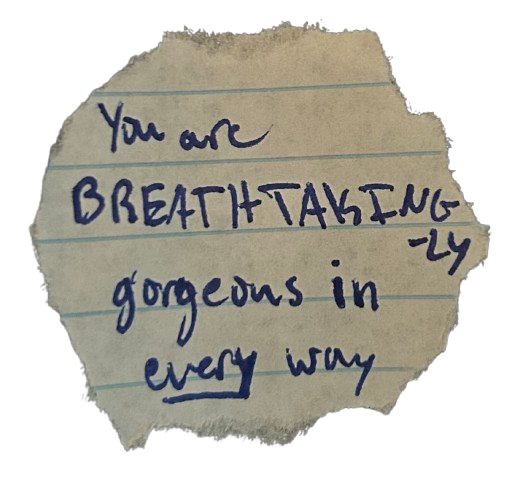 You are
BREATHTAKING
-LY
gorgeous in
every way